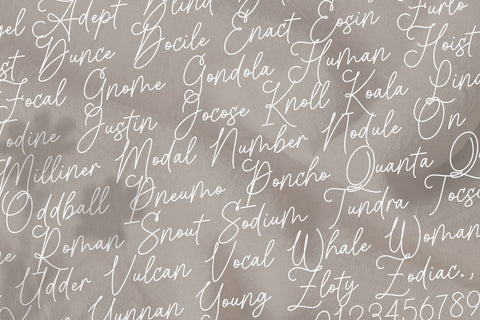 Adept Blind
Dunce Docile Enact Eosin Furlo
Focal Gnome Gondola Human Hoist
Iodine Justin Jocose Knoll Koala
Milliner Modal Number Nodule On
Oddball Pneumo Poncho Quanta
Roman Snout Sodium Tundra Tocsi
Udder Vulcan Vocal Whale Woman
Yunnan Young Zloty Zodiac.,
0123456789